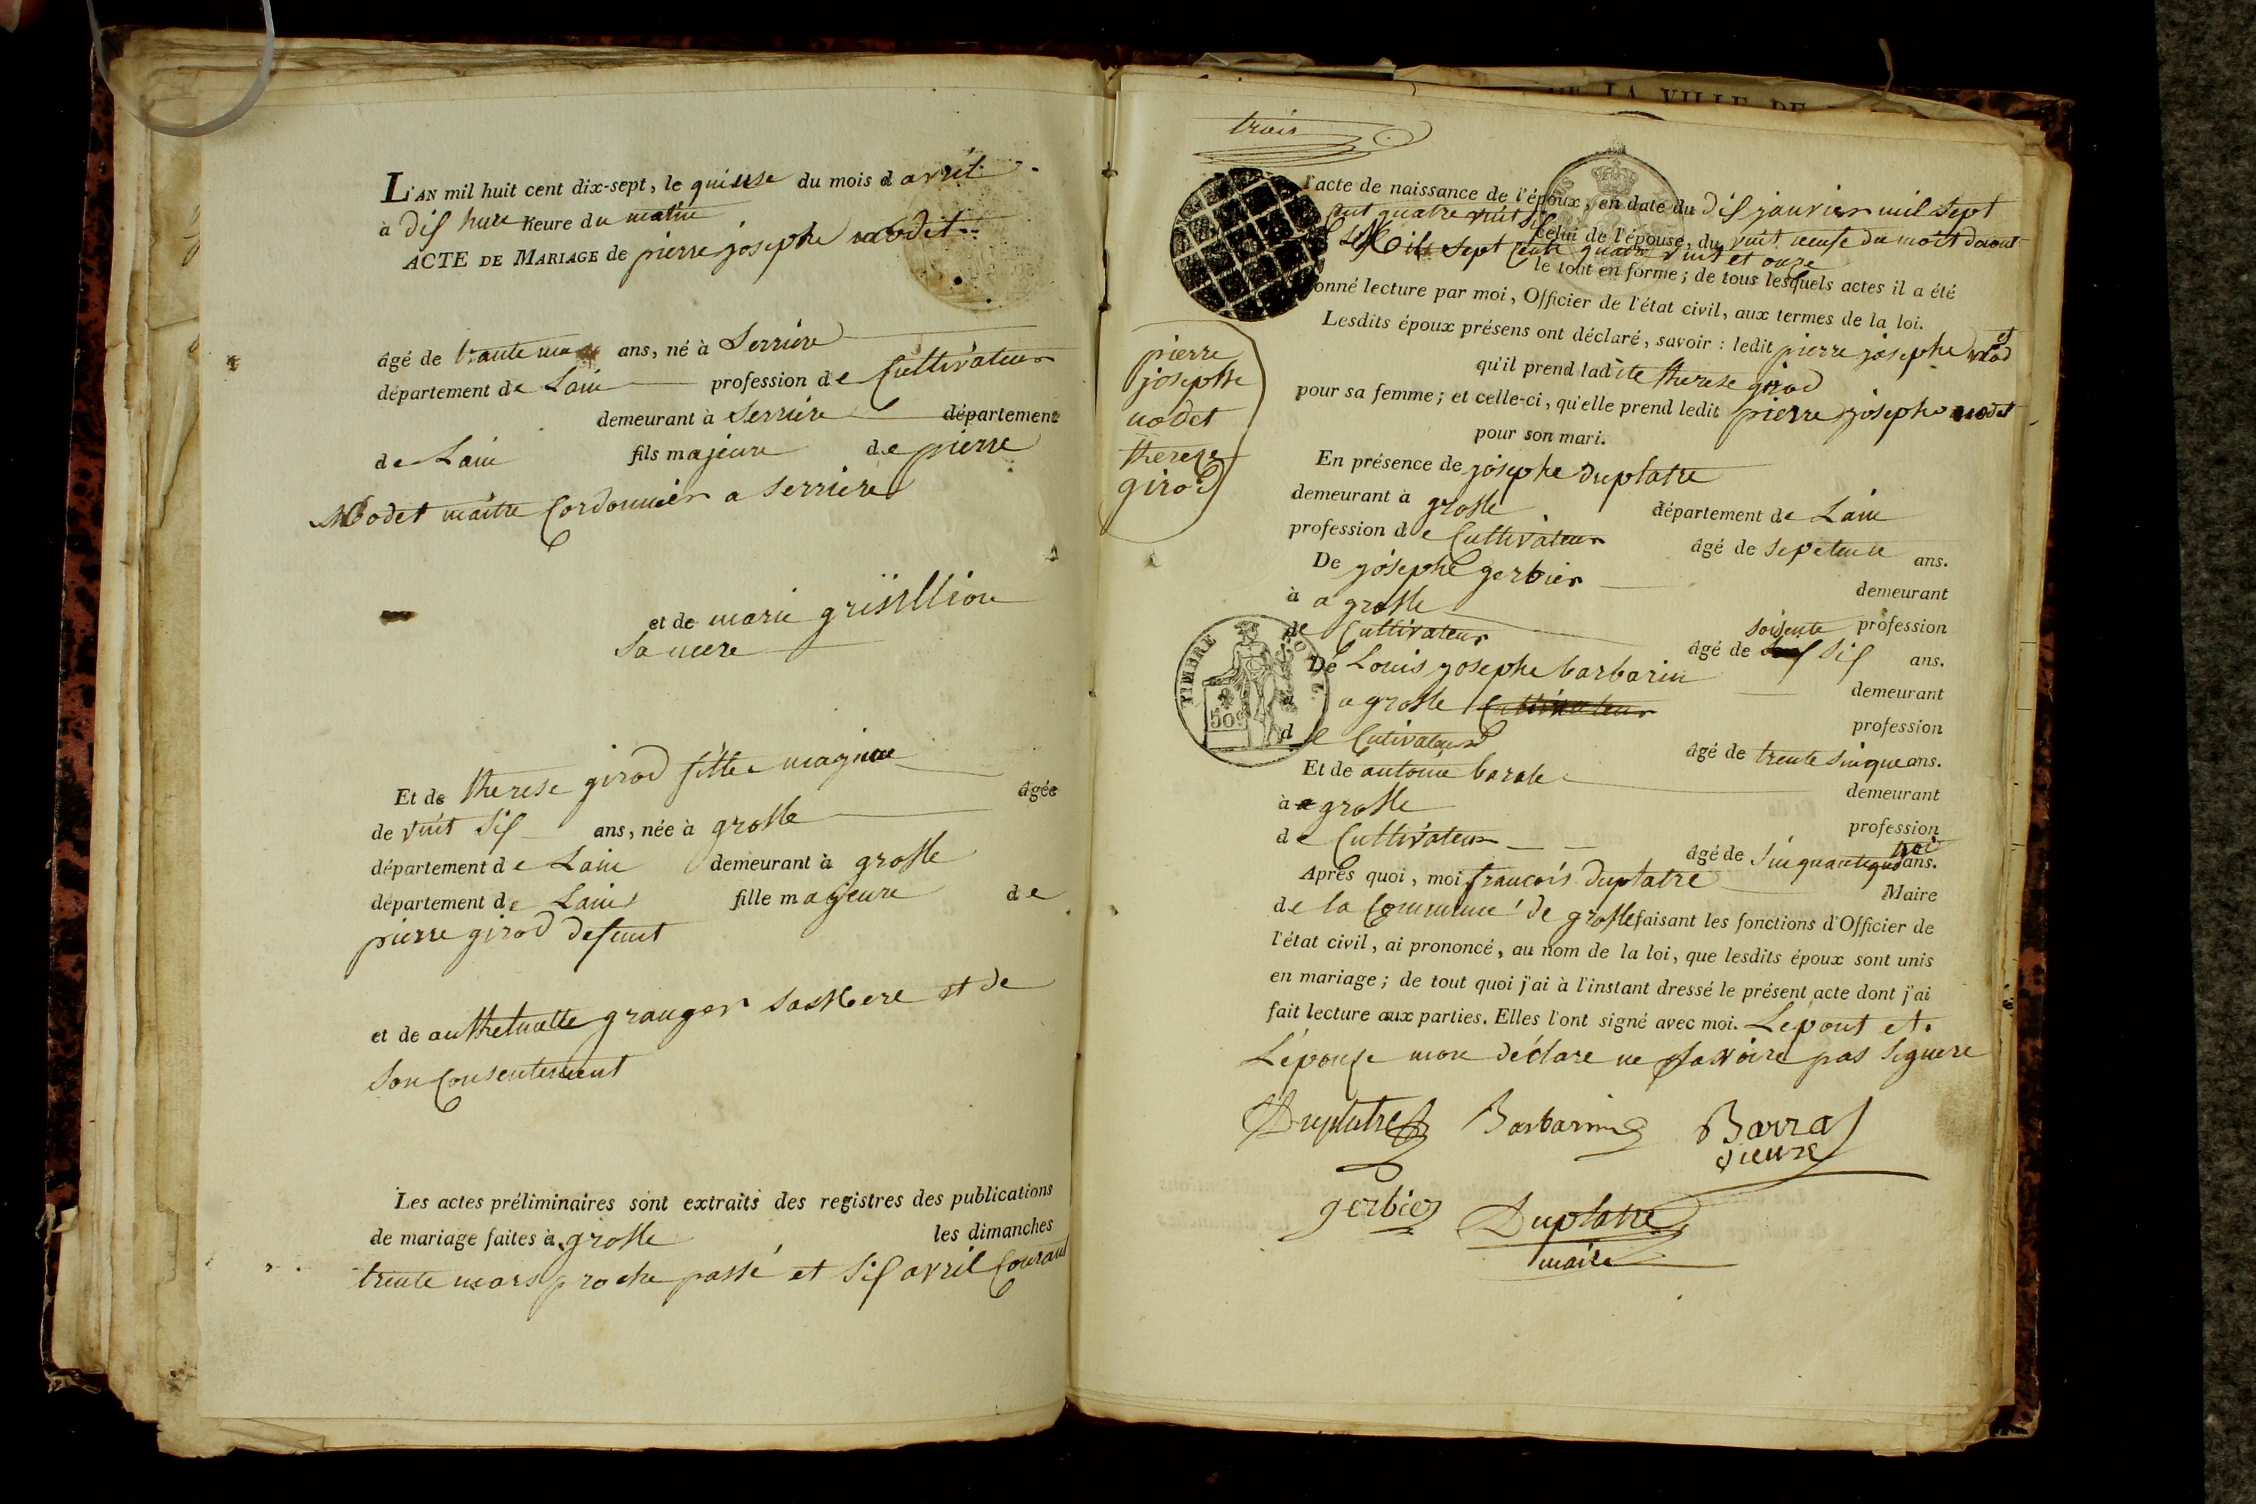 L'AN mil huit cent dix-sept, le quinse du mois d avril
à dis hure heure du matin
ACTE DE MARIAGE de pierre josephe nodet
âgé de trante ans, né à Serrière
département de Lain profession de Cultivateur
demeurant à Serrière département
de Lain fils majeure de pierre
Nodet maitre Cordonnier a Serriere
et de marie
Sa mere
Et de therese girod fille
de vint Sis ans, née à grosle âgée
département de Lain demeurant à grosle
département de Lain fille majeure de
pierre girod defunt
et de granger Sa Mere et de
Son Consentement
Les actes préliminaires sont extraits des registres des publications
de mariage faites à grosle les dimanches
trente mars proche passé et Sis avril Courant
trois
LA VILLE DE
l'acte de naissance de l'époux, en date du dis janvier mil Sept
cent quatre vint Sis
celui de l'épouse, du vint neufe du moit daout
Mile Sept Cente quatre vint et onze
le tout en forme; de tous lesquels actes il a été
donné lecture par moi, Officier de l'état civil, aux termes de la loi.
Lesdits époux présens ont déclaré, savoir: ledit pierre josephe nodet
qu'il prend ladite therese girod
pour sa femme; et celle-ci, qu'elle prend ledit pierre josephe nodet
pour son mari.
pierre
josephe
nodet
therese
girod
En présence de josephe Duplatre
demeurant à grosle département de Lain
profession de Cultivateur âgé de ans.
De josephe gerbier demeurant
à a grosle profession
de Cultivateur âgé de soisente Sis ans.
De Louis josephe barbarin demeurant
a grosle Cultivateur profession
de Cutivateur âgé de trente Sinque ans.
Et de antoine demeurant
à a grosle profession
de Cultivateur âgé de ans.
TIMBRE ROYAL
50c
Après quoi, moi francois Duplatre Maire
de la Commune de grosle faisant les fonctions d'Officier de
l'état civil, ai prononcé, au nom de la loi, que lesdits époux sont unis
en mariage; de tout quoi j'ai à l'instant dressé le présent acte dont j'ai
fait lecture aux parties. Elles l'ont signé avec moi. Lepout et
Lépouse mon déclare ne Savoire pas Signere
Duplatre Barbarin Barra
gerbier Duplatre
maire